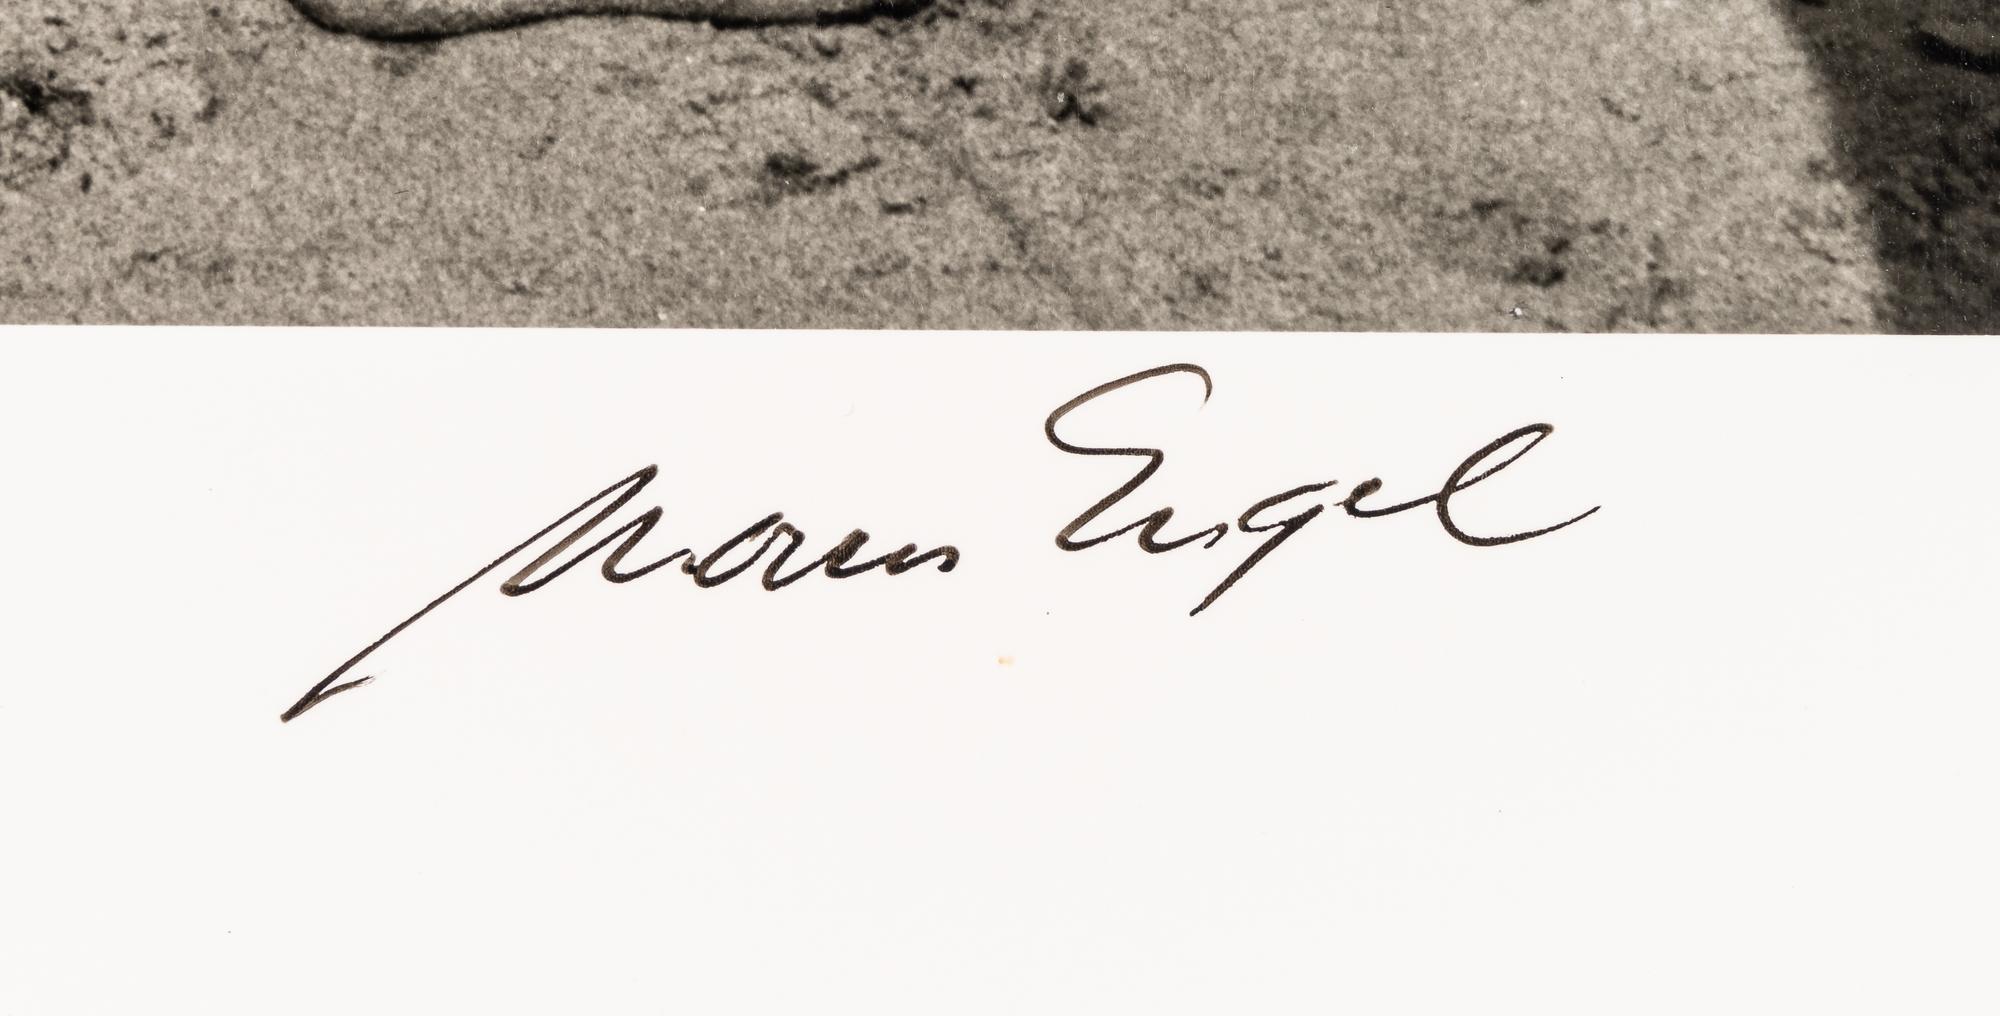 Morris Engel